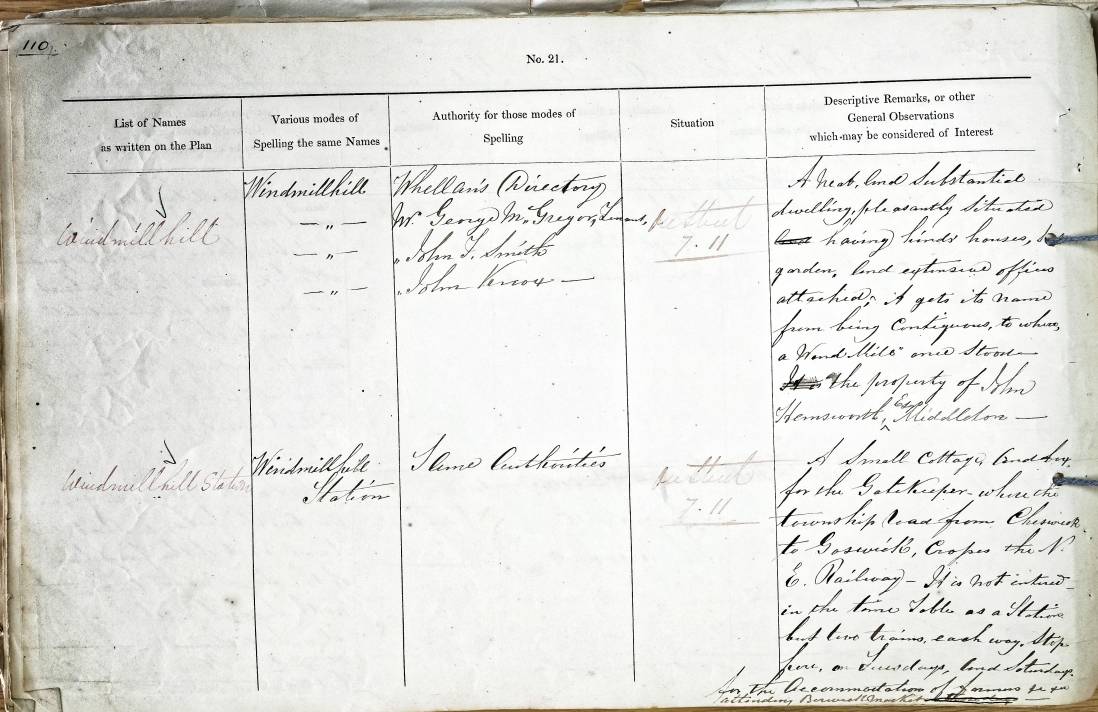 110
No. 21.
List of Names
as written on the Plan
Various modes of
Spelling the same Names
Authority for those modes of
Spelling
Situation
Descriptive Remarks, or other
General Observations
which may be considered of Interest
Windmillhill
Windmillhill
— „ —
— „ —
— „ —
Whellan's Directory
Mr. George McGregor, Tenant,
„ John T. Smith
„ John Knox —
See Sheet
7.11
A neat, and Substantial
dwelling, pleasantly situated
having hinds houses,
garden, and extensive offices
attached; it gets its name
from being Contiguous, to where
a "Wind Mill" once Stood—
the property of John
Hemsworth, Esqr Middleton —
Windmillhill Station
Windmillhill
Station
Same Authorities
See Sheet
7.11
A Small Cottage, and
for the GateKeeper - where the
township road from Cheswick
to Goswick, Crosses the N.
E. Railway - It is not entered
in the time Table as a Station
but two trains, each way, Stop
here, on Tuesdays, and Saturdays.
for the accommodation of farmers &c &c
attending Berwick Market